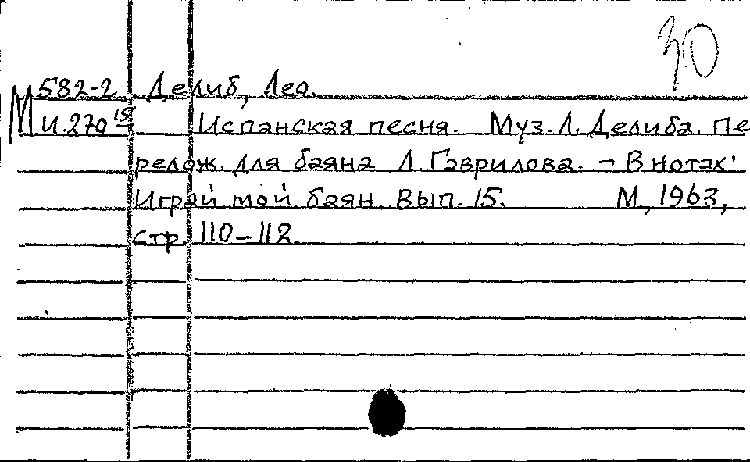 30
М 582-2 Делиб, Лео.
И.270 15 Испанская песня. Муз. Л. Делиба. Пе
релож. для баяна Л. Гаврилова. – В нотах:
Играй мой баян. Вып. 15. М., 1963,
стр. 110–112.